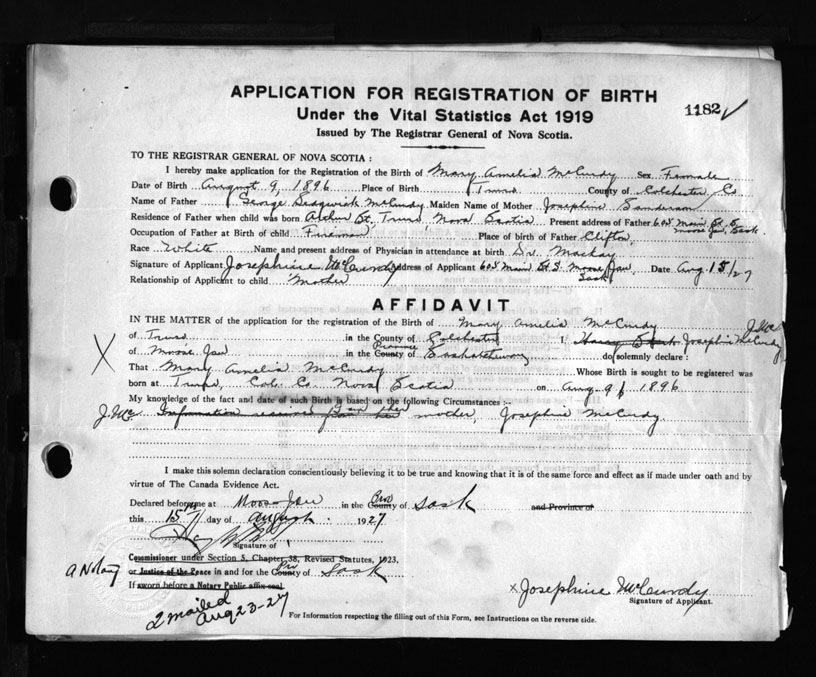 APPLICATION FOR REGISTRATION OF BIRTH
1182
Under the Vital Statistics Act 1919
Issued by The Registrar General of Nova Scotia.
TO THE REGISTRAR GENERAL OF NOVA SCOTIA :
I hereby make application for the Registration of the Birth of Mary Amelia McCurdy Sex Female
Date of Birth August 9, 1896 Place of Birth Truro County of Colchester Co
Name of Father George Sedgwick McCurdy Maiden Name of Mother Josephine Sanderson
Residence of Father when child was born Arthur St. Truro Nova Scotia Present address of Father 602 Main St S Moose Jaw, Sask.
Occupation of Father at Birth of child Fireman Place of birth of Father Clifton
Race White Name and present address of Physician in attendance at birth Dr. Mackay
Signature of Applicant Josephine McCurdy Address of Applicant 602 Main St S. Moose Jaw Sask Date Aug 15/27
Relationship of Applicant to child Mother
AFFIDAVIT
IN THE MATTER of the application for the registration of the Birth of Mary Amelia McCurdy J. Mc
of Truro in the County of Colchester I, Josephine McCurdy
of Moose Jaw in the County Province of Saskatchewan do solemnly declare :
That Mary Amelia McCurdy Whose Birth is sought to be registered was
born at Truro, Col. Co. Nova Scotia on Aug 9th 1896
My knowledge of the fact and date of such Birth is based on the following Circumstances :-
J. Mc. Information received from her I am the mother, Josephine McCurdy.
I make this solemn declaration conscientiously believing it to be true and knowing that it is of the same force and effect as if made under oath and by
virtue of The Canada Evidence Act.
Declared before me at Moose Jaw in the County Prov of Sask and Province of
this 15th day of August 1927
Signature of
Commissioner under Section 5, Chapter 38, Revised Statutes, 1923,
A Notary or Justice of the Peace in and for the County Prov of Sask
If sworn before a Notary Public affix seal
x Josephine McCurdy
Signature of Applicant.
2 mailed
Aug 23-27
For Information respecting the filling out of this Form, see Instructions on the reverse side.